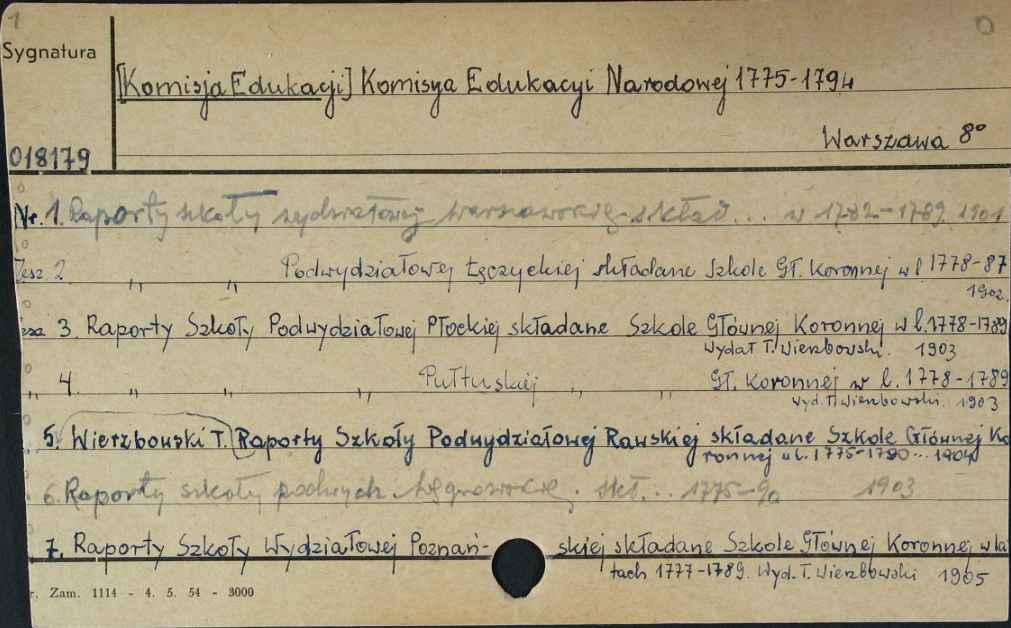 1
Sygnatura
[Komisja Edukacji] Komisya Edukacyi Narodowej 1775-1794
Warszawa 8°
018179
Nr. 1. Raporty szkoły wydziałowej warszawskiej skład... w 1782-1789 1901
Zesz 2 " " Podwydziałowej Łęczyckiej składane Szkole Gł. Koronnej w l 1778-87
1902.
zesz 3. Raporty Szkoły Podwydziałowej Płockiej składane Szkole Głównej Koronnej w l. 1778-1789
wydał T. Wierzbowski. 1903
" 4. " " " Pułtuskiej " " Gł. Koronnej w l. 1778-1789
wyd. T. Wierzbowski. 1903
" 5. Wierzbowski T. Raporty Szkoły Podwydziałowej Rawskiej składane Szkole Głównej Ko
ronnej w l. 1775-1790... 1904
6. Raporty szkoły podwydz. Węgrowskiej. skł... 1775-90 1903
7. Raporty Szkoły Wydziałowej Poznań- skiej składane Szkole Głównej Koronnej w la
tach 1777-1789. Wyd. T. Wierzbowski 1905
r. Zam. 1114 - 4. 5. 54 - 3000